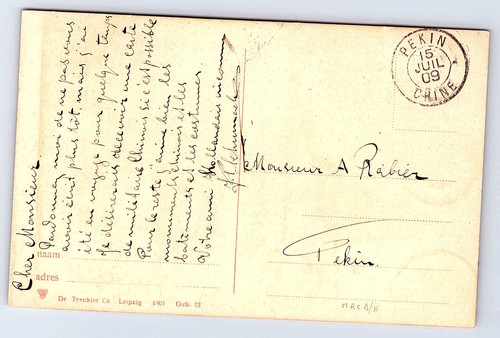 Cher Monsieur
Pardonnez moi de ne pas vous
avoir écrit plus tôt, mais j'ai
été en voyage pour quelque temps
Je désirerais recevoir une carte
de militaire Chinois si c'est possible
Pour le reste j'aime bien les
monuments chinois et les
batiments et les costumes.
Votre ami Hollandais
PEKIN
15
JUIL
09
CHINE
Monsieur A Rabier
Pekin.
naam
adres
Dr Trenkler Co. Leipzig 1907 Gvh. 13